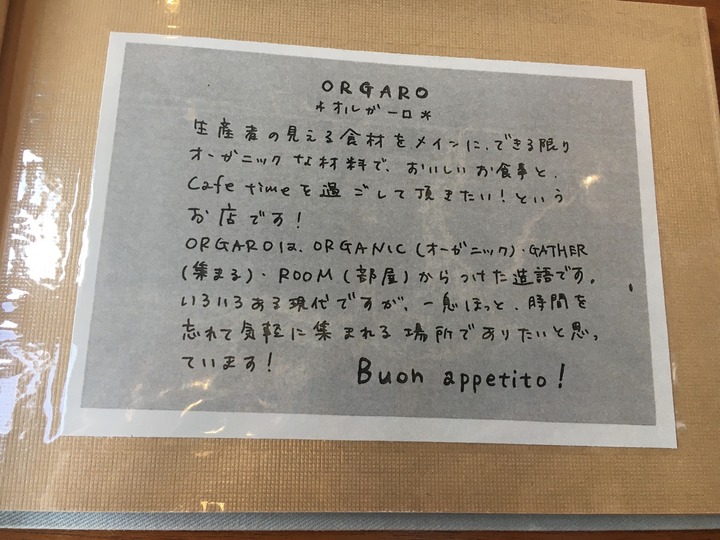 ORGARO
*オルガーロ*
生産者の見える食材をメインに、できる限り
オーガニックな材料で、おいしいお食事と、
Cafe timeを過ごして頂きたい！という
お店です！
ORGAROは、ORGANIC(オーガニック)・GATHER
(集まる)・ROOM(部屋)からつけた造語です。
いろいろある現代ですが、一息ほっと、時間を
忘れて気軽に集まれる場所でありたいと思っ
ています！
Buon appetito!